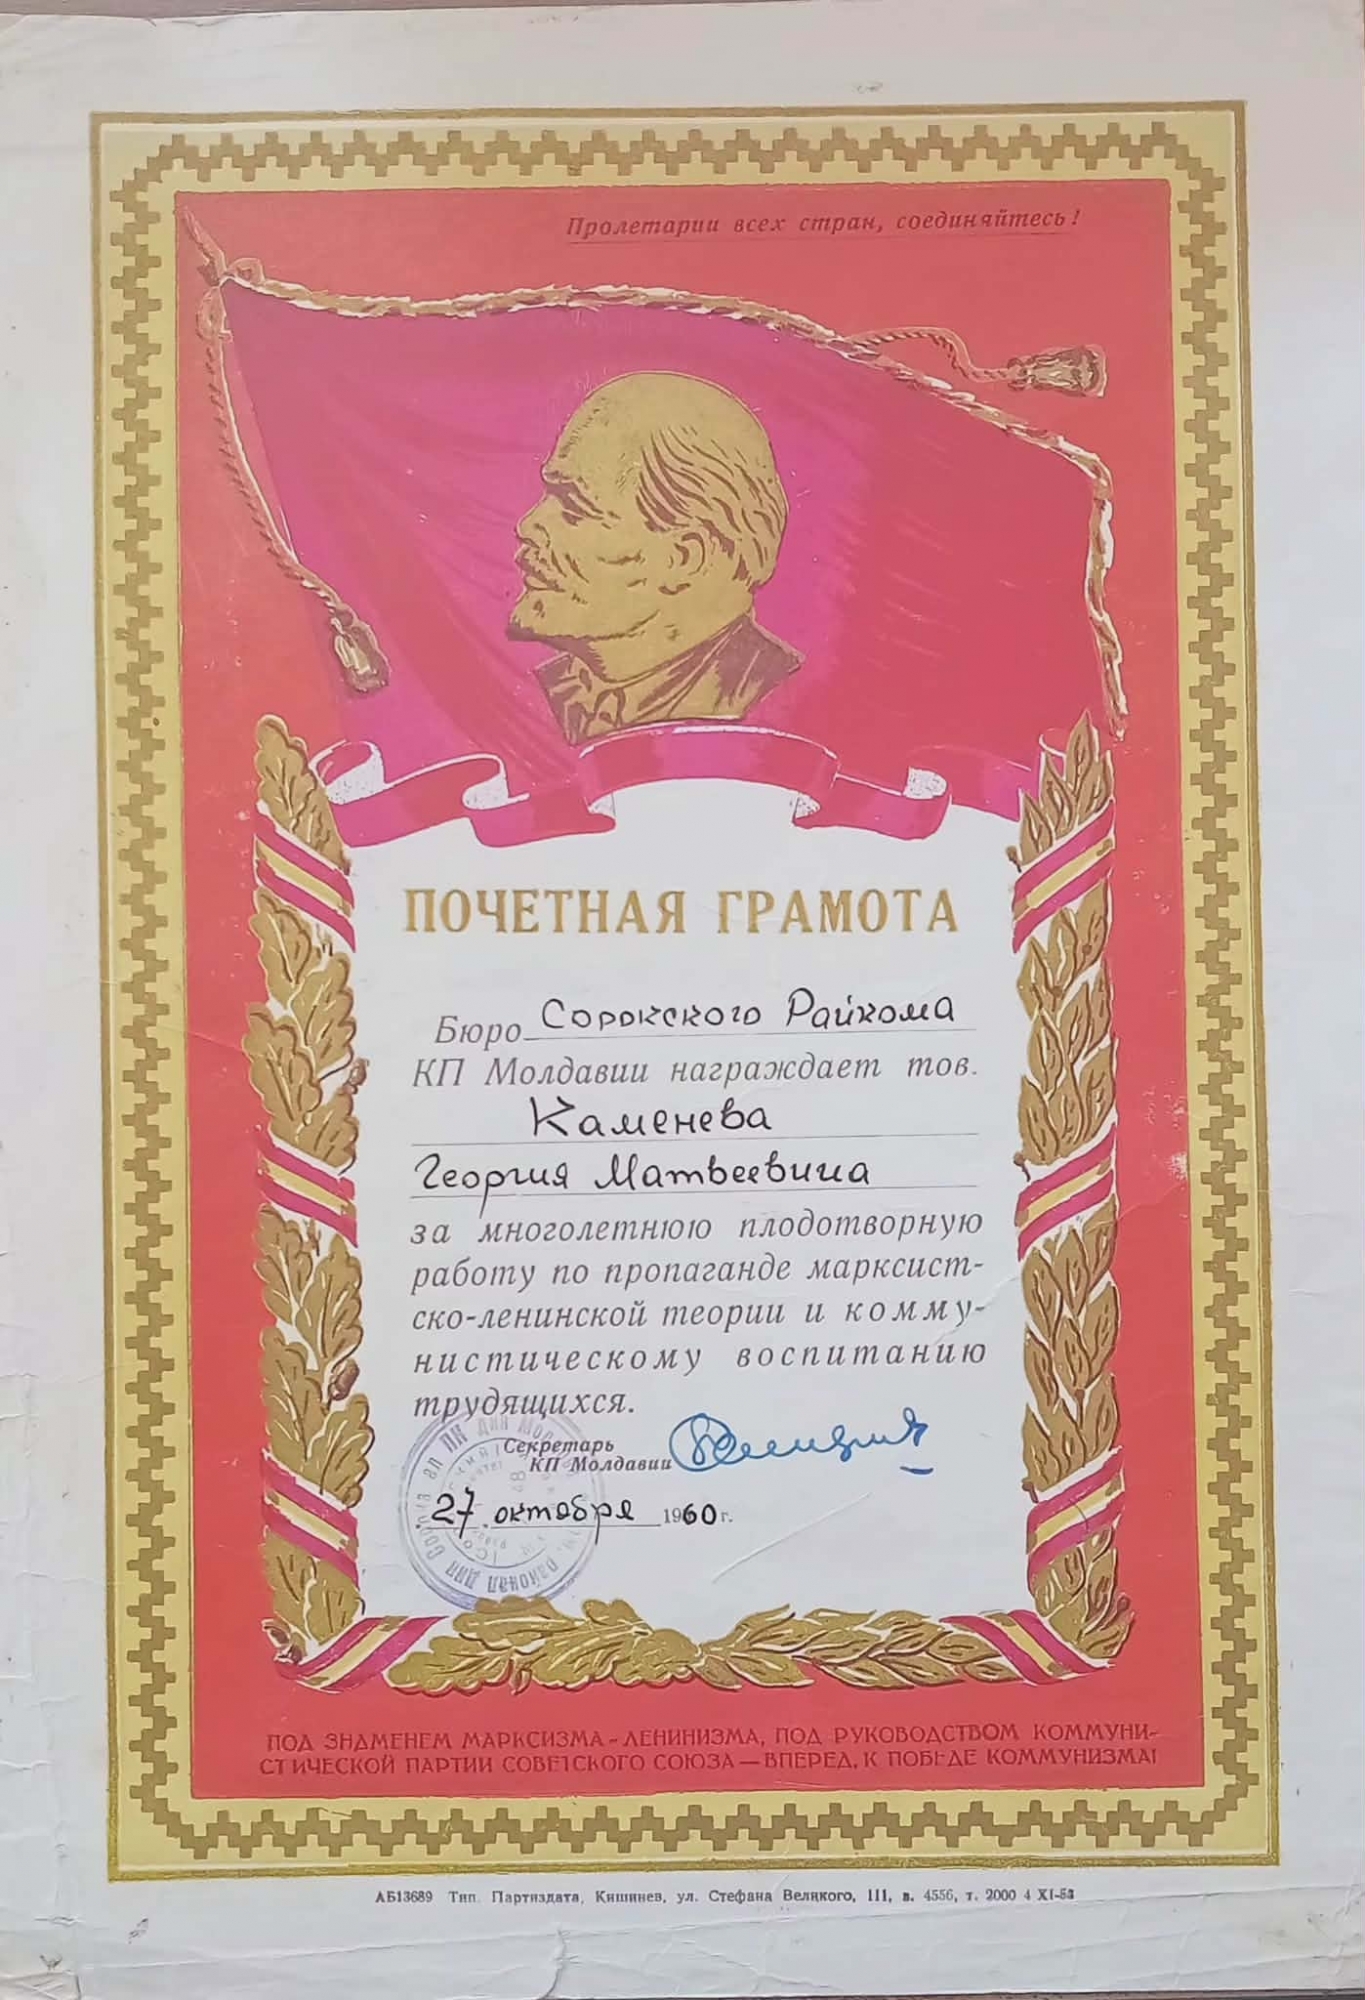 Пролетарии всех стран, соединяйтесь!
ПОЧЕТНАЯ ГРАМОТА
Бюро Сорокского Райкома
КП Молдавии награждает тов.
Каменева
Георгия Матвеевича
за многолетнюю плодотворную
работу по пропаганде марксист-
ско-ленинской теории и комму-
нистическому воспитанию
трудящихся.
Секретарь
КП Молдавии
27 октября 1960 г.
ПОД ЗНАМЕНЕМ МАРКСИЗМА-ЛЕНИНИЗМА, ПОД РУКОВОДСТВОМ КОММУНИ-
СТИЧЕСКОЙ ПАРТИИ СОВЕТСКОГО СОЮЗА — ВПЕРЕД, К ПОБЕДЕ КОММУНИЗМА!
АБ13689 Тип. Партиздата, Кишинев, ул. Стефана Великого, 111, з. 4556, т. 2000 4 XI-53